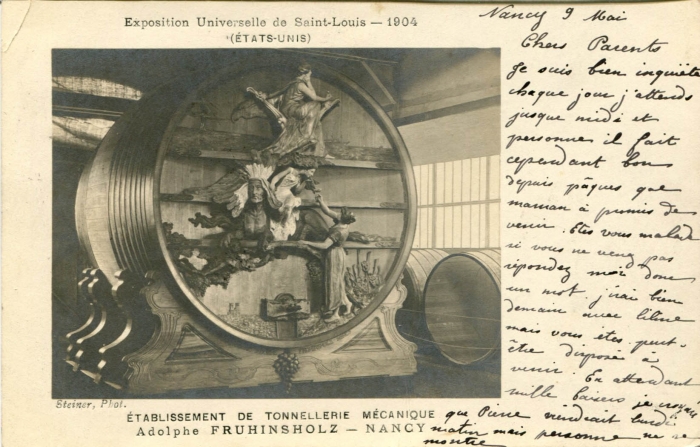 Exposition Universelle de Saint-Louis — 1904
(ÉTATS-UNIS)
Nancy 9 Mai
Chers Parents
Je suis bien inquiète
chaque jour j'attends
jusque midi et
personne il fait
cependant bon
depuis pâques que
maman a promis de
venir. Etes vous malade
si vous ne venez pas
répondez moi donc
un mot j'irai bien
demain avec
mais vous êtes peut-
être disposé à
venir. En attendant
mille baisers je croyais
que Pierre viendrait lundi
matin mais personne ne se
montre
Steiner, Phot.
ÉTABLISSEMENT DE TONNELLERIE MÉCANIQUE
Adolphe FRUHINSHOLZ — NANCY